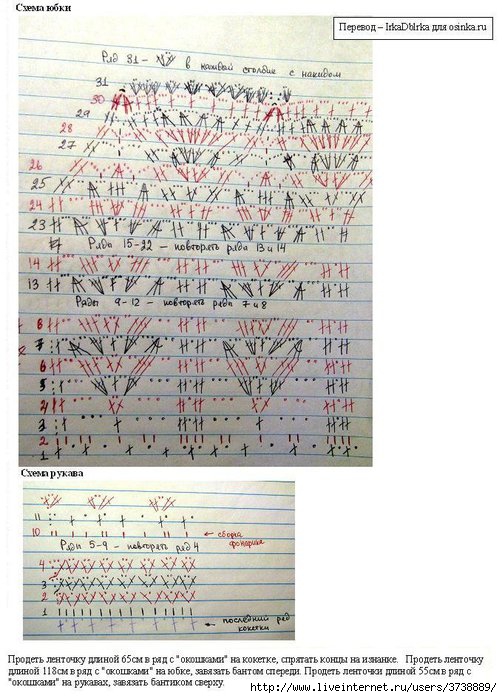 Схема юбки
Перевод – IrkaDblrka для osinka.ru
Ряд 31 – в каждый столбик с накидом
31
30
29
28
27
26
25
24
23
Ряды 15-22 – повторять ряды 13 и 14
14
13
Ряды 9-12 – повторять ряды 7 и 8
8
7
6
5
4
3
2
1
Схема рукава
11
10 ← сборка фонарика
Ряды 5-9 – повторять ряд 4
4
3
2
1
← последний ряд кокетки
Продеть ленточку длиной 65см в ряд с "окошками" на кокетке, спрятать концы на изнанке. Продеть ленточку
длиной 118см в ряд с "окошками" на юбке, завязать бантом спереди. Продеть ленточки длиной 55см в ряд с
"окошками" на рукавах, завязать бантиком сверху.
http://www.liveinternet.ru/users/3738889/